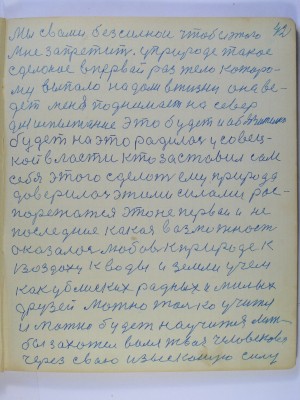 42
Мы с вами безсильное чтобы этого
мне запретит. у природе такое
сделоное впервый раз тело которо-
му выпало на долю в жизни она ве-
дет меня поднимает на север
для испытание это будет
будет на это радилася у совец-
кой власти кто заставил сам
себя этого сделат ему природа
доверилас этими силами рос-
поряжатся это не первая и не
последние какая возможност
оказалос любовь к природе к
воздоху к воды и земли учем
как у блиских радных и милых
друзей можно толко учится
и можно будет научится лиж-
бы захотел воля твоя человеково
через сваю изысконую силу